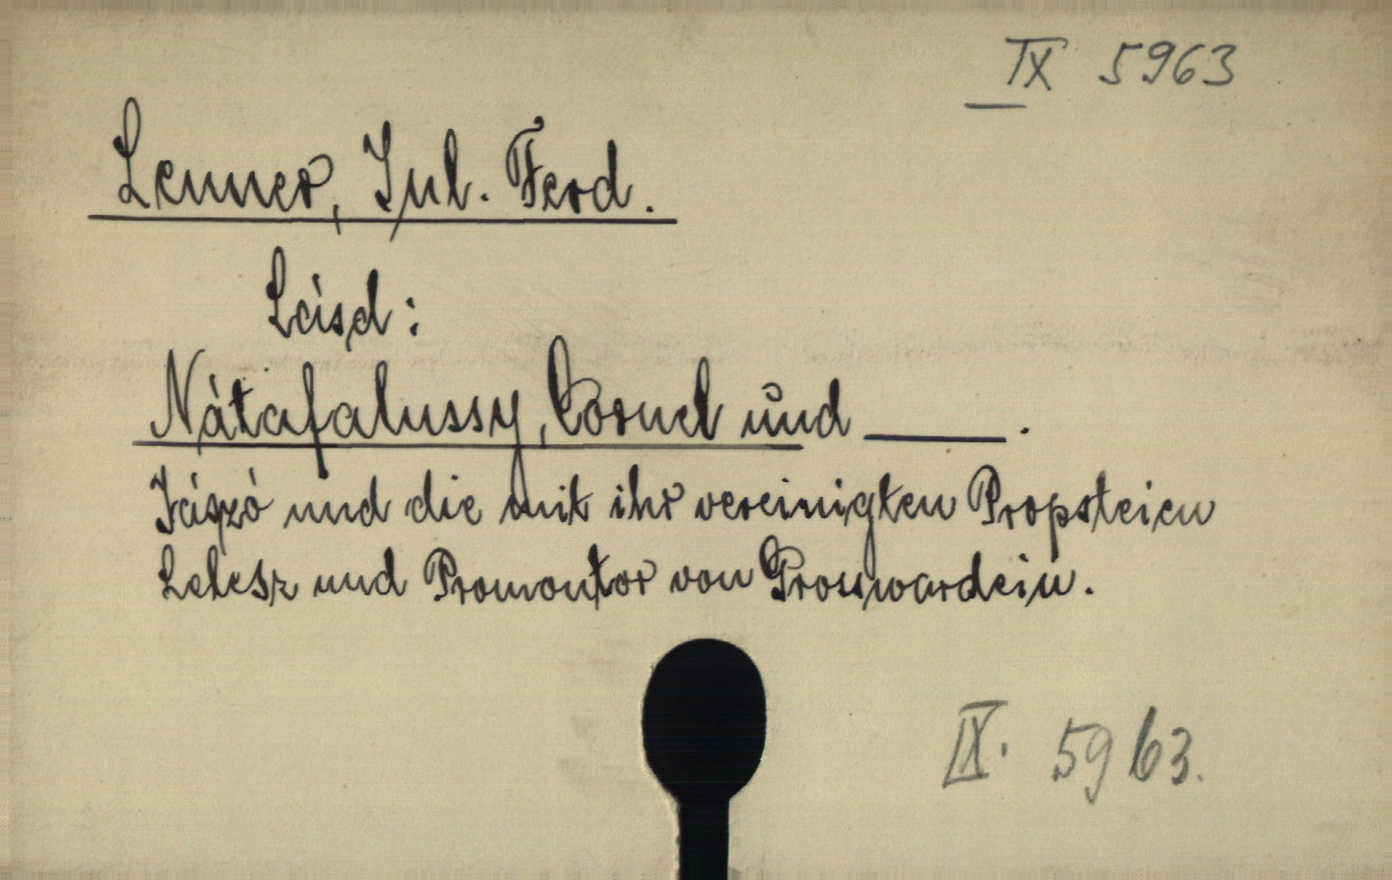 IX 5963
Lenner, Jul. Ferd.
Lásd:
Nátafalussy, Cornel und ______.
Jászó und die mit ihr vereinigten Propsteien
Lelesz und Promontor von Grosswardein.
IX. 5963.